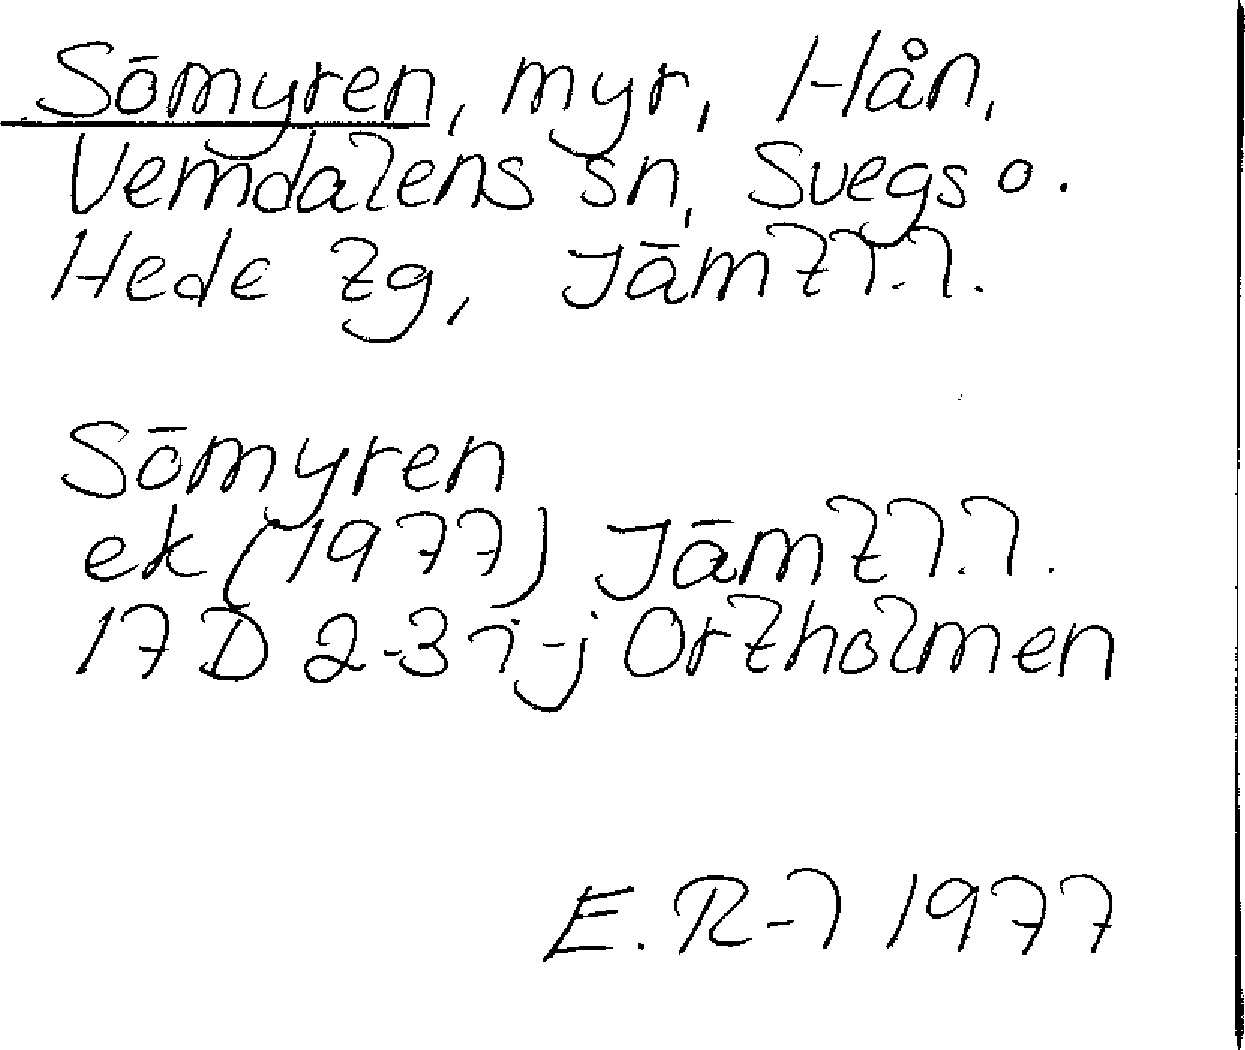 Sömyren, myr, Hån,
Vemdalens sn, Svegs o.
Hede tg, Jämtl. l.
Sömyren
ek (1977) Jämtl. l.
17 D 2-3 i-j Ortholmen
E. R-l 1977